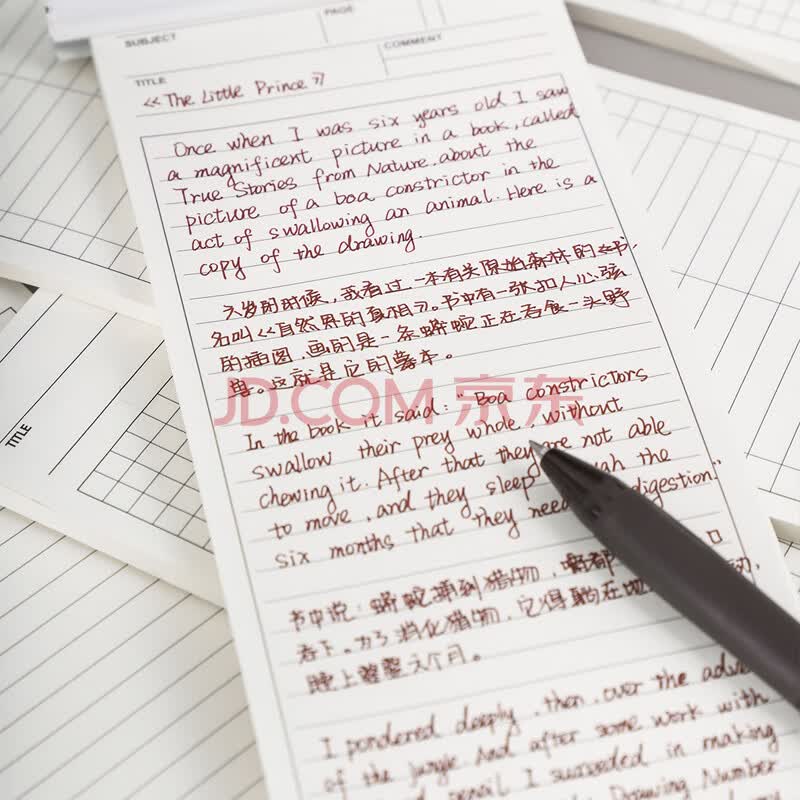 SUBJECT
PAGE
COMMENT
TITLE
《The Little Prince》
Once when I was six years old I saw
a magnificent picture in a book, called
True Stories from Nature, about the
picture of a boa constrictor in the
act of swallowing an animal. Here is a
copy of the drawing.
六岁的时候,我看过一本有关原始森林的书,
名叫《自然界的真相》。书中有一张扣人心弦
的插图,画的是一条蟒蛇正在吞食一头野
兽。这就是它的摹本。
JD.COM 京东
In the book it said: "Boa constrictors
swallow their prey whole, without
chewing it. After that they are not able
to move, and they sleep the
six months that they need digestion."
书中说:蟒蛇捕到猎物,
吞下。为了消化猎物,它得躺在
睡上整整六个月。
I pondered deeply, then, over the
of the jungle And after some work with
pencil I succeeded in making
Drawing Number
TITLE